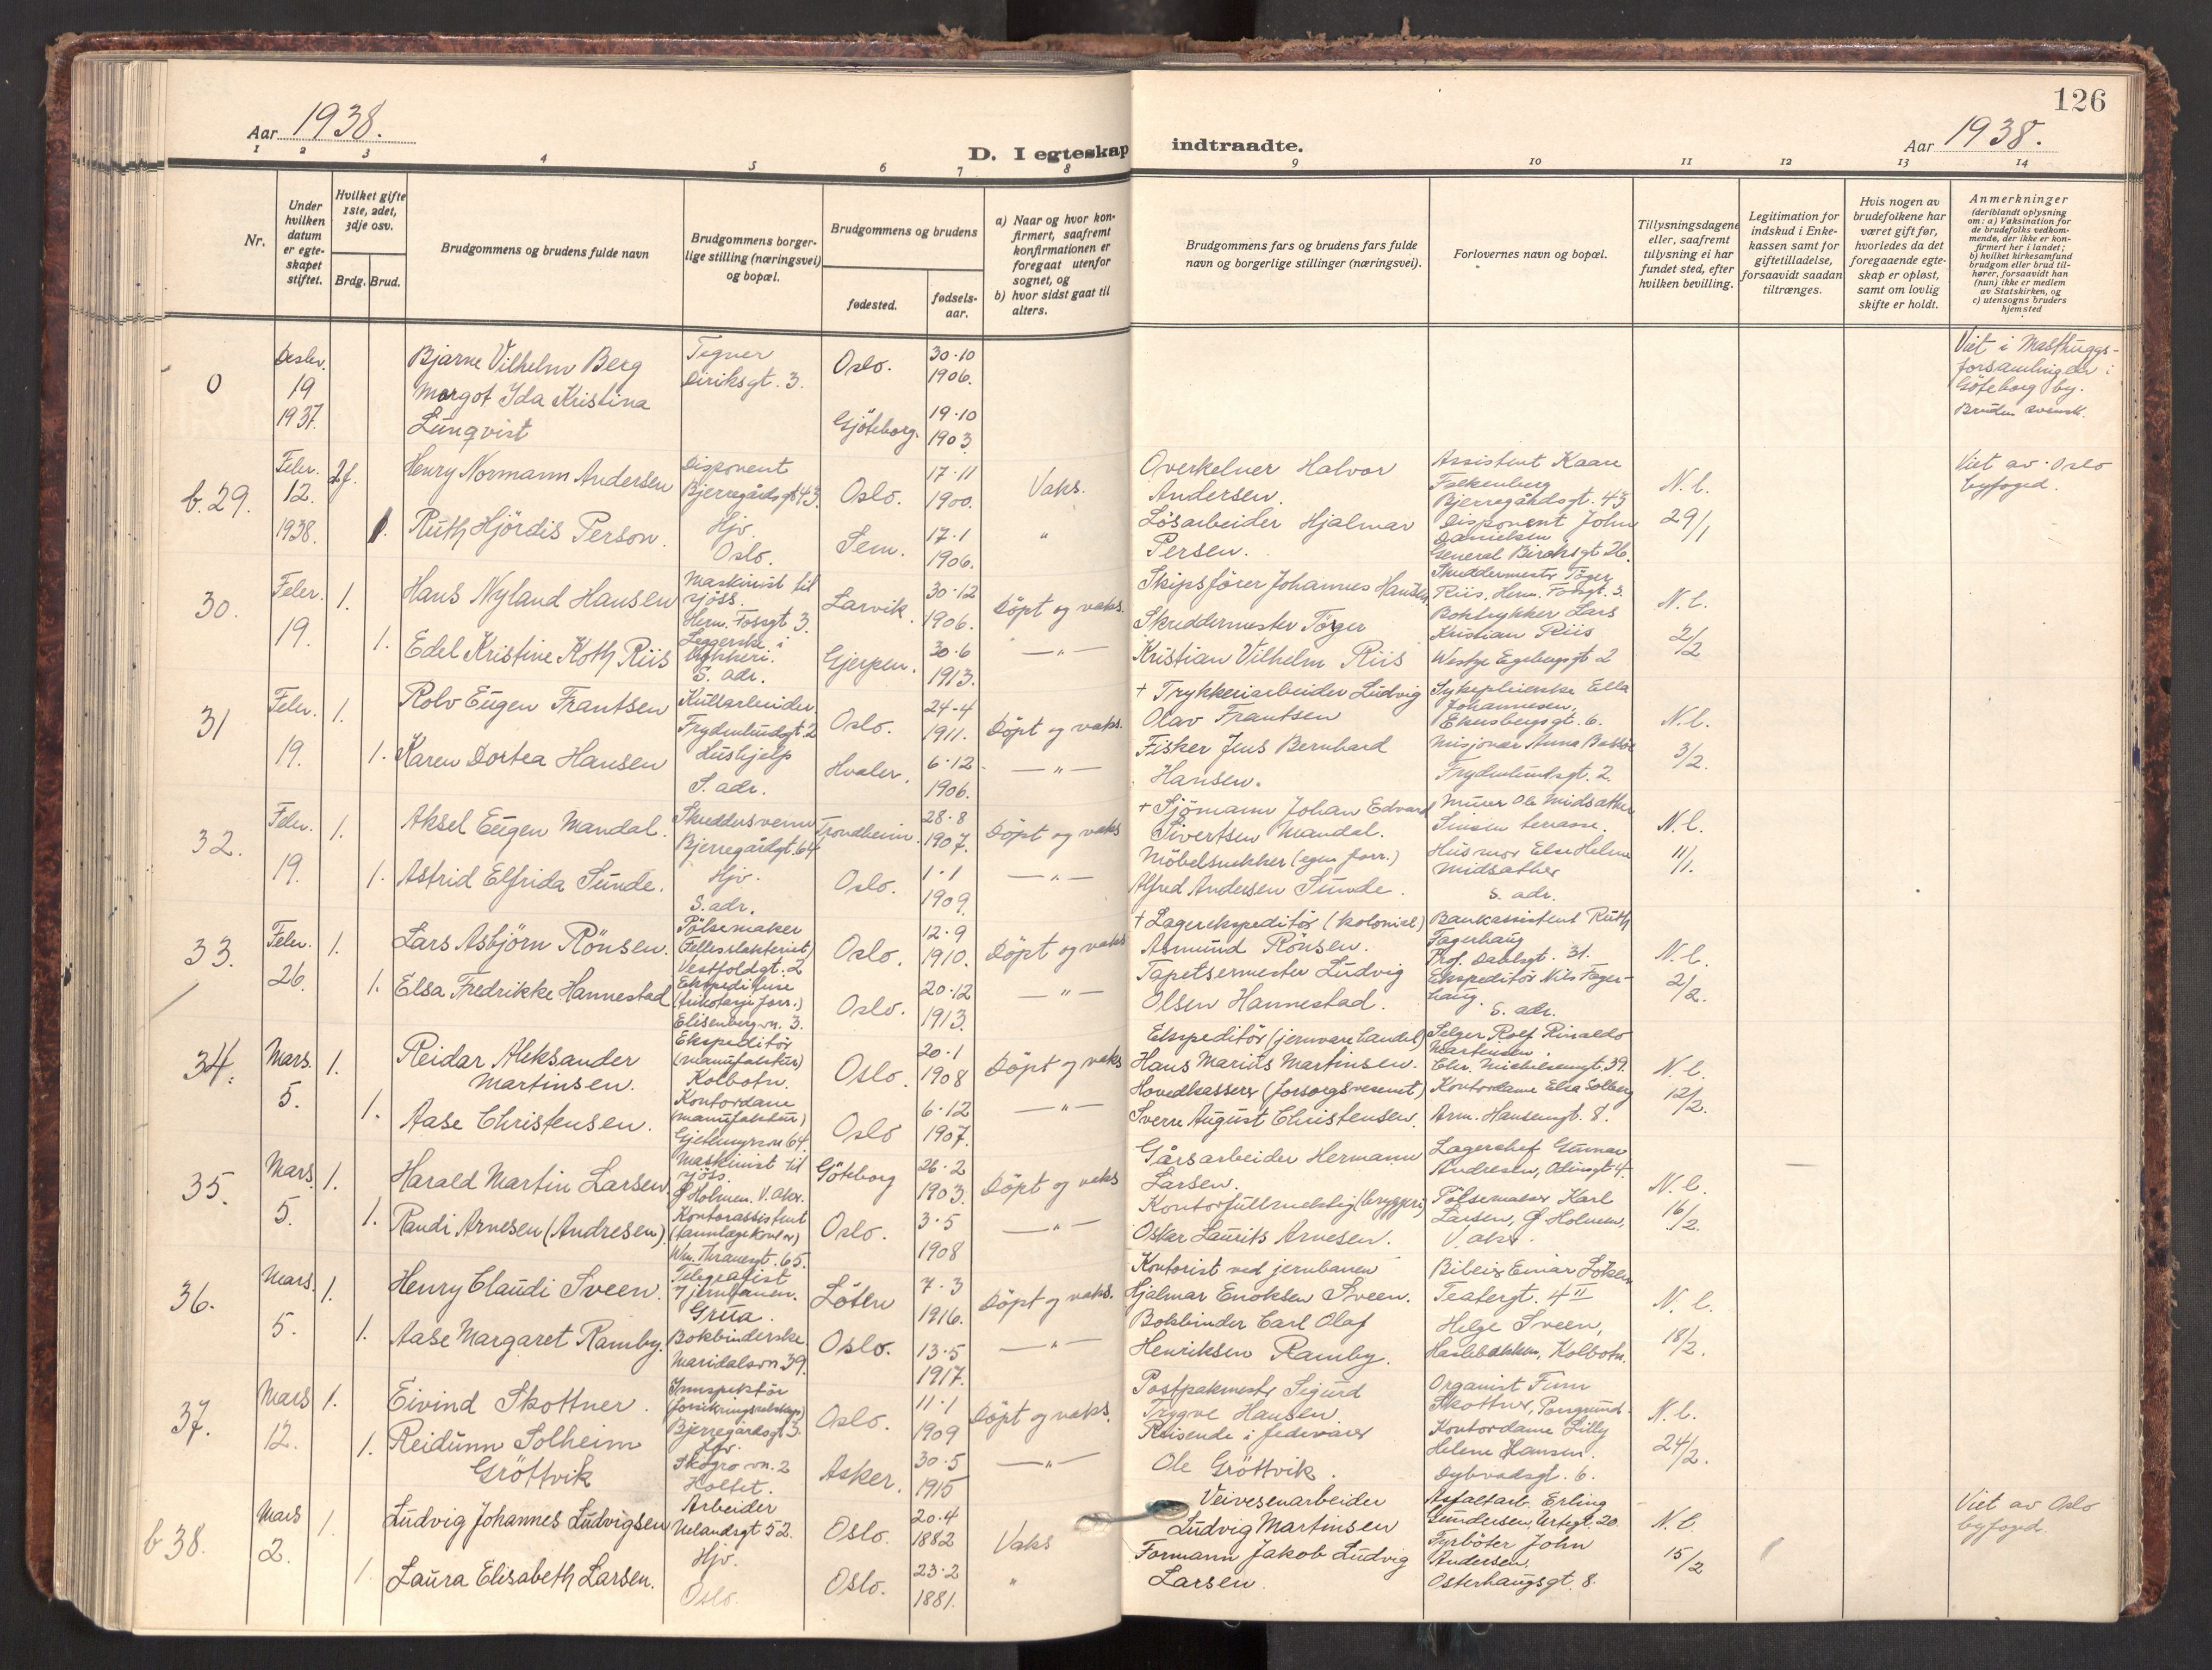 126
Aar 1938.
D. I egteskap indtraadte.
Aar 1938.
1 2 3 4 5 6 7 8 9 10 11 12 13 14
Nr.
Under hvilken datum er egte- skapet stiftet.
Hvilket gifte 1ste, 2det, 3dje osv.
Brdg. Brud.
Brudgommens og brudens fulde navn
Brudgommens borger- lige stilling (næringsvei) og bopæl.
Brudgommens og brudens
fødested.
fødsels- aar.
a) Naar og hvor kon- firmert, saafremt konfirmationen er foregaat utenfor sognet, og
b) hvor sidst gaat til alters.
Brudgommens fars og brudens fars fulde navn og borgerlige stillinger (næringsvei).
Forlovernes navn og bopæl.
Tillysningsdagene eller, saafremt tillysning ei har fundet sted, efter hvilken bevilling.
Legitimation for indskud i Enke- kassen samt for giftetilladelse, forsaavidt saadan tiltrænges.
Hvis nogen av brudefolkene har været gift før, hvorledes da det foregaaende egte- skap er opløst, samt om lovlig skifte er holdt.
Anmerkninger
(deriblandt oplysning om: a) Vaksination for de brudefolks vedkom- mende, der ikke er kon- firmert her i landet; b) hvilket kirkesamfund brudgom eller brud til- hører, forsaavidt han (hun) ikke er medlem av Statskirken, og c) utensogns bruders hjemsted
0
19
1937.
Bjarne Vilhelm Berg
Tegner
Diriksgt. 3.
Oslo.
30·10
1906.
Margot Ida Kristina
Lunqvist
Gjöteborg.
19·10
1903
Viet i Masthuggs-
forsamlingen i
Göteborg by.
Bruden svensk.
b. 29.
Febr.
12.
1938.
2g.
Henry Normann Andersen
Disponent
Bjerregårdsgt 43.
Oslo.
17·11
1900.
Vaks.
Overkelner Halvor
Andersen.
Assistent Kaare
Falkenberg
Bjerregårdsgt. 43
N. l.
29/1
Viet av Oslo
byfoged.
1.
Ruth Hjördis Person.
Hjv.
Oslo.
Sem.
17·1
1906.
"
Løsarbeider Hjalmar
Persen.
Disponent John
Danielsen
General Birchsgt 26.
30.
Febr.
19.
1.
Hans Nyland Hansen
Maskinist til
sjöss.
Herm. Fossgt 3.
Larvik
30·12
1906.
Döpt og vaks.
Skipsfører Johannes Hansen
Skreddermester Töger
Riis, Herm. Fossgt. 3.
N. l.
2/2
1.
Edel Kristine Koth Riis
Leggerske i
trykkeri.
S. adr.
Gjerpen.
30·6
1913.
—"—
Skreddermester Töger
Kristian Vilhelm Riis
Boktrykker Lars
Kristian Riis
Westye Egebergsgt 2
31
Febr.
19.
1.
Rolv Eugen Frantsen
Kullarbeider
Frydenlundgt. 2
Oslo.
24-4
1911.
Döpt og vaks.
+ Trykkeriarbeider Ludvig
Olav Frantsen
Sykepleierske Ella
Johannesen,
Ekensbergsgt. 6.
N. l.
3/2.
1.
Karen Dortea Hansen
Hushjelp
S. adr.
Hvaler.
6·12
1906.
—"—
Fisker Jens Bernhard
Hansen.
Misjonær Anna
Frydenlundsgt. 2.
32.
Febr.
19.
1.
Aksel Eugen Mandal.
Skreddersvenn
Bjerregårdgt. 64
Trondheim.
28·8
1907.
Döpt og vaks
+ Sjömann Johan Edvard
Sivertsen Mandal.
Murer Ole Midsæther
Sinsen terrasse.
N. l.
11/1.
1.
Astrid Elfrida Sunde.
Hjv.
S. adr.
Oslo.
1·1
1909.
—"—
Möbelsnekker (egen forr.)
Alfred Andersen Sunde.
Husmor Else Helene
Midsæther
S. adr.
33.
Febr.
26.
1.
Lars Asbjörn Rönsen.
Pölsemaker
(Fellesslakteriet)
Vestfoldgt. 2
Oslo.
12·9
1910.
Döpt og vaks
+ Lagerekspeditör (kolonial)
Asmund Rönsen.
Bankassistent Ruth
Fagerhaug
Prof. Dahlsgt. 31.
N. l.
2/2.
1.
Elsa Fredrikke Hannestad
Ekspeditrise
(trikotasje forr.)
Elisenberg vn. 3.
Oslo.
20·12
1913.
—"—
Tapetsermester Ludvig
Olsen Hannestad.
Ekspeditör Nils Fager-
haug.
S. adr.
34.
Mars.
5.
1.
Reidar Aleksander
Martinsen.
Ekspeditör
(manufaktur)
Kolbotn.
Oslo.
20·1
1908
Döpt og vaks
Ekspeditör (jernvare handel)
Hans Marius Martinsen.
Selger Rolf Rinaldo
Martinsen
Chr. Michelsensgt. 39.
N. l.
12/2.
1.
Aase Christensen.
Kontordame
(manufaktur)
Gjetemyrsvn 64.
Oslo
6·12
1907.
—"—
Hovedkasserer (forsorgsvesenet)
Sverre August Christensen.
Kontordame Elsa Solberg
Arm. Hansensgt. 8.
35.
Mars.
5.
1.
Harald Martin Larsen.
Maskinist til
sjöss.
Ø Holmen. V. Aker.
Göteborg
26·2
1903.
Döpt og vaks
Gårsarbeider Hermann
Larsen.
Lagerchef Gunnar
Andresen, Odinsgt 4.
N. l.
16/2.
1.
Randi Arnesen (Andresen).
Kontorassistent
(tannlægekontor)
Wm. Thranesgt. 65.
Oslo.
3·5
1908
—"—
Kontorfullmektig (bryggeri)
Oskar Laurits Arnesen.
Pölsemaker Karl
Larsen, Ø Holmen,
V. aker.
36.
Mars.
5.
1.
Henry Claudi Sveen.
Telegrafist
v jernbanen.
Grua.
Löten
7·3
1916.
Döpt og vaks.
Kontorist ved jernbanen
Hjalmar Enoksen Sveen.
Bileier Einar Löken
Teatergt. 4 II
N. l.
18/2.
1.
Aase Margaret Ramby.
Bokbinderske
Maridalsvn 39.
Oslo.
13·5
1917.
—"—
Bokbinder Carl Olaf
Henriksen Ramby.
Helge Sveen,
Haslebakken, Kolbotn.
37.
Mars
12.
1.
Eivind Skottner.
Innspektör
(forsikringsselskap)
Bjerregårdsgt 3.
Oslo.
11·1
1909
Döpt og vaks.
Postpakmester Sigurd
Trygve Hansen.
Organist Finn
Skottner, Porsgrund.
N. l.
24/2.
1.
Reidunn Solheim
Gröttvik
Hjv.
Skogro vn. 2
Holtet.
Asker.
30·5
1915
—"—
Reisende i fedevarer
Ole Gröttvik.
Kontordame Lilly
Helene Hansen.
Dybvadsgt. 6.
b 38.
Mars
2.
1.
Ludvig Johannes Ludvigsen
Arbeider
Uelandsgt 52.
Oslo.
20.4
1882
Vaks
Veivesenarbeider
Ludvig Martinsen
Asfaltarb. Erling
Gundersen, Urtegt. 20.
N. l.
15/2
Viet av Oslo
byfoged.
1.
Laura Elisabeth Larsen.
Hjv.
Oslo.
Oslo.
23·2
1881.
"
Formann Jakob Ludvig
Larsen.
Fyrböter John
Andersen,
Osterhausgt. 8.